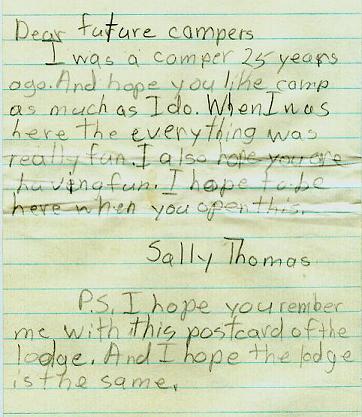 Dear future campers
I was a camper 25 years
ago. And hope you like camp
as much as I do. When I was
here the everything was
really fun. I also hope you are
having fun. I hope to be
here when you open this.
Sally Thomas
P.S. I hope you rember
me with this postcard of the
lodge. And I hope the lodge
is the same.